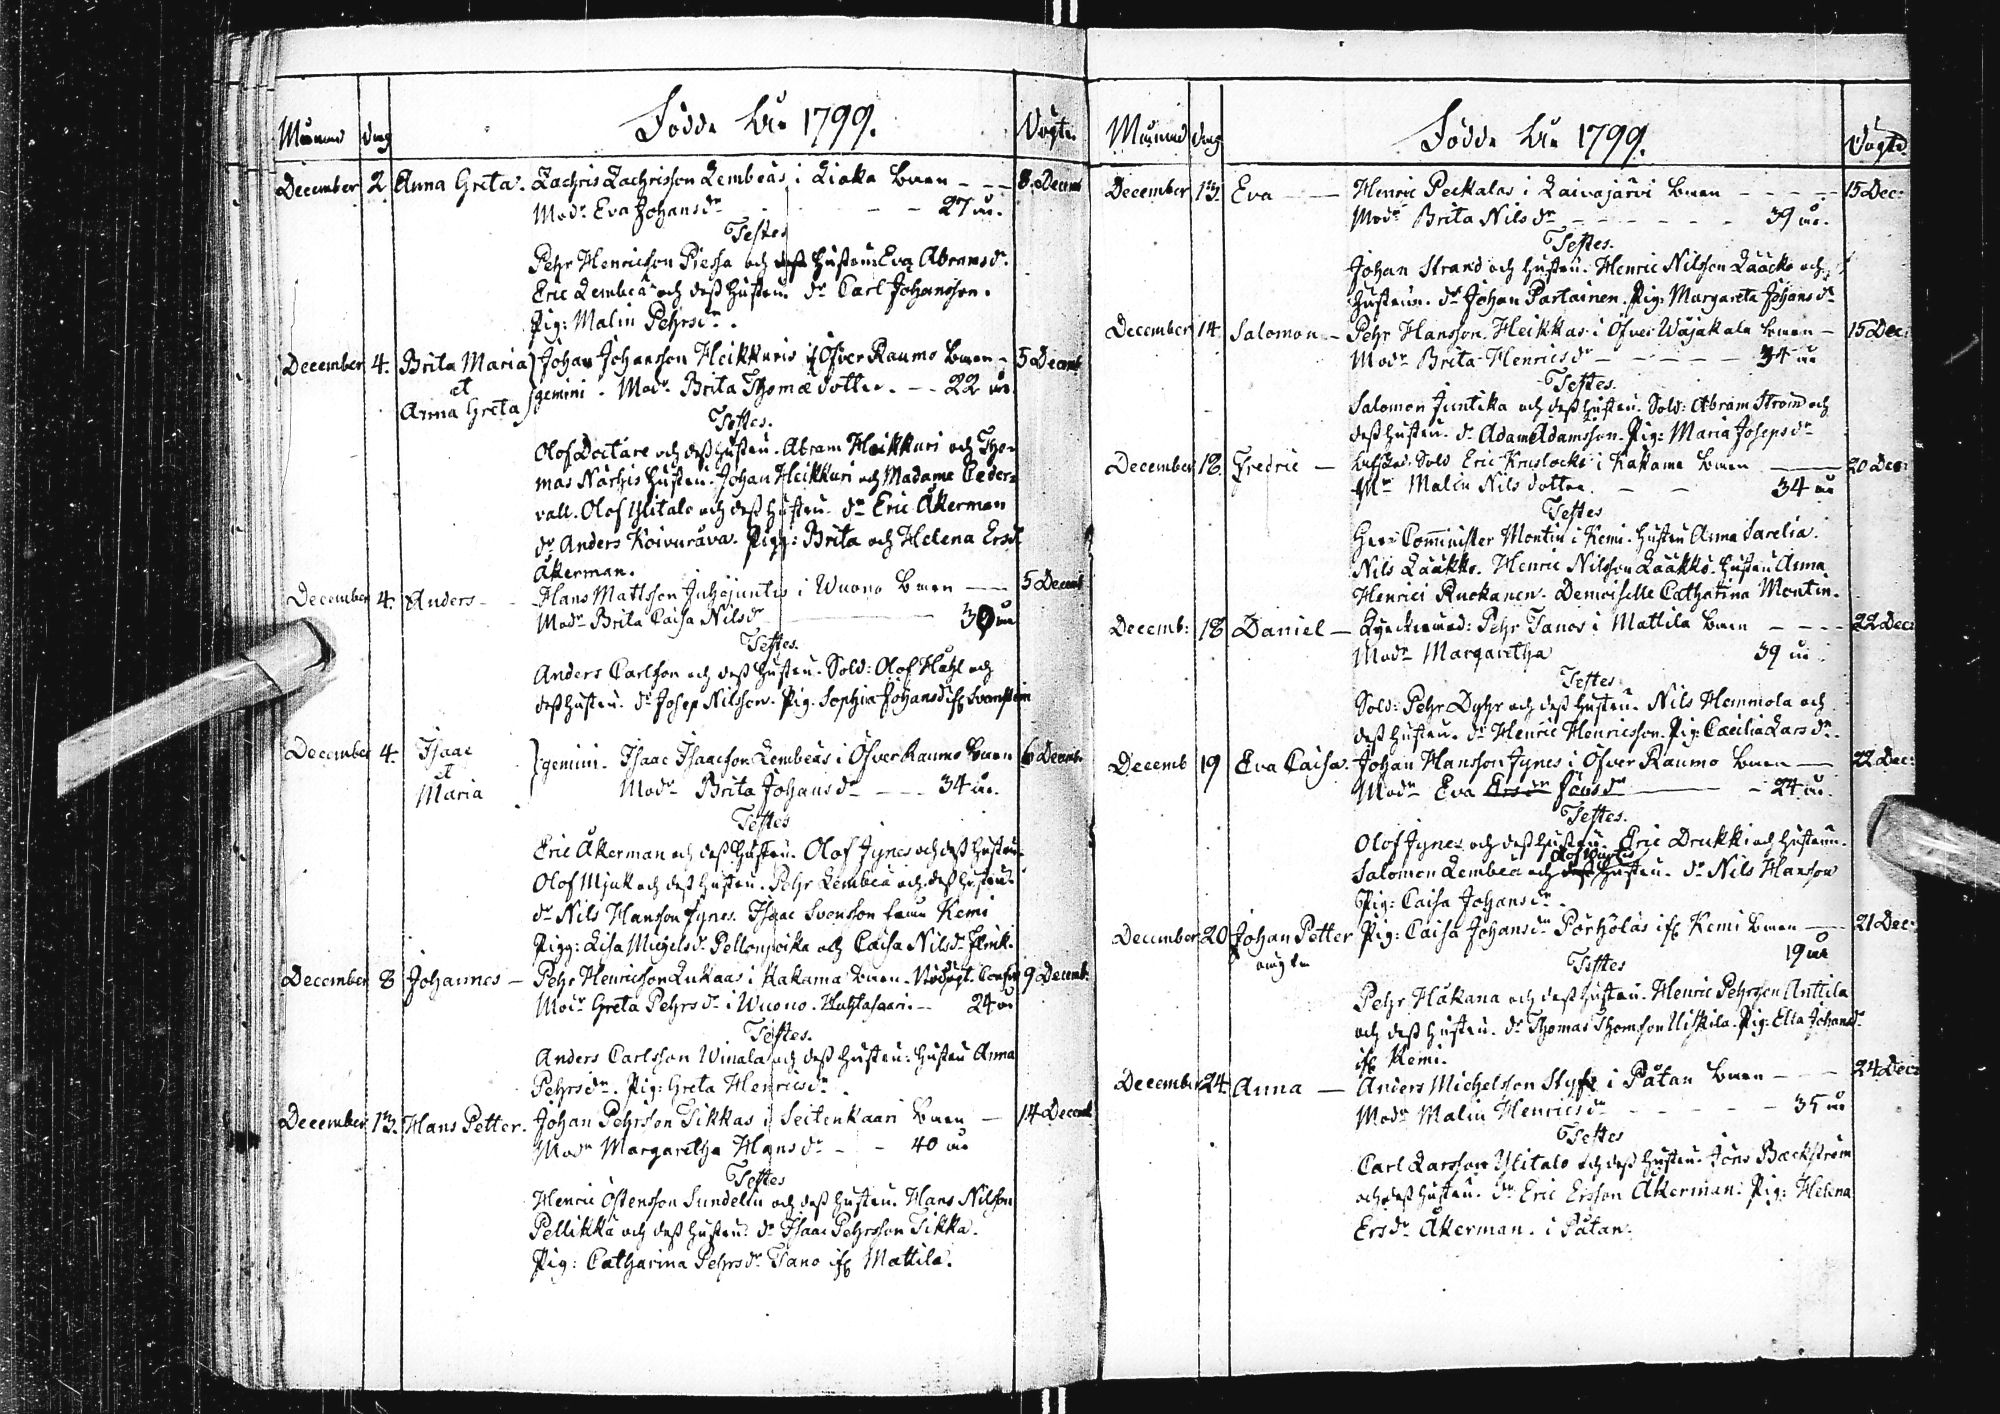 Månad Dag Födde År 1799. Döpte
December 2 Anna Greta. Zachris Zachrisson Lembeas i Liaka barn - - 8. Decemb
Modr Eva Johansdr - - - 27 år.
Testes
Pehr Henricson Piessa och dess hustru Eva Abramsdr.
Eric Lembea och dess hustru. dr Carl Johansson.
Pig: Malin Pehrsdr.
December 4. Brita Maria } Johan Johansson Heikkuris i Öfver Raumo barn - 5 Decemb
et } gemini. Modr. Brita Thomædotter. - 22 år
Anna Greta
Testes.
Olof Doctare och dess hustru. Abram Heikkuri och Tho-
mas Närhis hustru. Johan Heikkuri och Madame Ceder-
vall. Olof Ylitalo och dess hustru. dr Eric Åkerman
dr Anders Koivurava. Pigg: Brita och Helena Ersdr
Åkerman.
December 4. Anders - Hans Mattsson Juhojuntis i Wuono barn - 5 Decemb
Modr Brita Caisa Nilsdr - 30 år
Testes.
Anders Carlsson och dess hustru. Sold: Olof Hahl och
dess hustru. dr Josep Nilsson. Pig. Sophia Johansdr ifr Svenstein
December 4. Isaac } gemini. Isaac Isaacson Lembeas i Öfver Raumo barn 6 Decemb
et
Maria Modr Brita Johansdr - 34 år.
Testes
Eric Åkerman och dess hustru. Olof Jynes och dess hustru
Olof Mjuk och dess hustru. Pehr Lembea och dess hustru.
dr Nils Hansson Jynes. Isaac Svensson från Kemi
Pigg: Lisa Michelsdr. Pellonpoika och Caisa Nilsdr
December 8 Johannes - Pehr Henricsson Lukaas i Kakama barn. 9 Decemb:
Modr Greta Pehrsdr i Wuono. Hahlasaari. - 24 år
Testes.
Anders Carlsson Winala och dess hustru: hustru Anna
Pehrsdr. Pig: Greta Henricsdr.
December 13. Hans Petter. Johan Pehrsson Tikkas i Seitenkaari barn - 14 Decemb
Modr Margaretha Hansdr - - 40 år
Testes
Henric Östensson Sundelin och dess hustru. Hans Nilsson
Pellikka och dess hustru: dr Isaac Pehrsson Tikka.
Pig: Catharina Pehrsdr Tano ifr Mattila.
Månad Dag Födde År 1799. Döpte
December 13. Eva - Henric Peckalas i Laivajärvi barn - - - 15 Dec:
Modr Brita Nilsdr - - - 39 år.
Testes.
Johan Strand och hustru. Henric Nilsson Lääcko och
hustrun. dr Johan Partainen. Pig: Margareta Johansdr
December 14. Salomon - Pehr Hansson Heikkas i Öfver Wojakala barn - 15 Dec:
Modr Brita Henricsdr - - - 34 år
Testes.
Salomon Juntika och dess hustru. Sold: Abram Ström och
dess hustru. dr Adam Adamsson. Pig: Maria Josepsdr
December 18. Fredric - Sold Eric Kruslocks i Kakama barn - 20 Dec:
Mr Malin Nilsdotter - - 34 år
Testes
Herr Comminister Montin i Kemi. hustru Anna Sarelia.
Nils Lääkkö. Henric Nilsson Lääkkö. hustru Anna
Henrici Ruokanen. Demoiselle Catharina Montin.
Decemb: 18. Daniel - Pehr Tanos i Mattila barn - - - 22 Dec:
Modr Margaretha 39 år.
Testes
Sold: Pehr Dyhr och dess hustru. Nils Hemmola och
dess hustru. dr Henric Henricsson. Pig: Cæcilia Larsdr.
Decemb 19 Eva Caisa. Johan Hansson Jynes i Öfver Raumo barn - 22 Dec:
Modr Eva Ersdr Jönsdr - 24 år.
Testes.
Olof Jynes och dess hustru. Eric Drukki och hustrun.
Salomon Lembea och dess hustru. dr Nils Hansson
Pig: Caisa Johansdr.
December 20 Johan Petter Pig: Caisa Johansdr Pörhölas ifr Kemi barn - 21 Dec:
19 år
Testes
Pehr Häkana och dess hustru. Henric Pehrsson Anttila
och dess hustru. dr Thomas Thomsson Uiskila. Pig: Elsa Johansdr
ifr Kemi.
December 24. Anna - Anders Michelsson Styfs i Påtan barn - - 24 Dec:
Modr Malin Henricsdr - - - 35 år
Testes
Carl Larsson Ylitalo och dess hustru. Jöns Backström
och dess hustru. dr Eric Ersson Åkerman. Pig: Helena
Ersdr Åkerman. i Påtan.